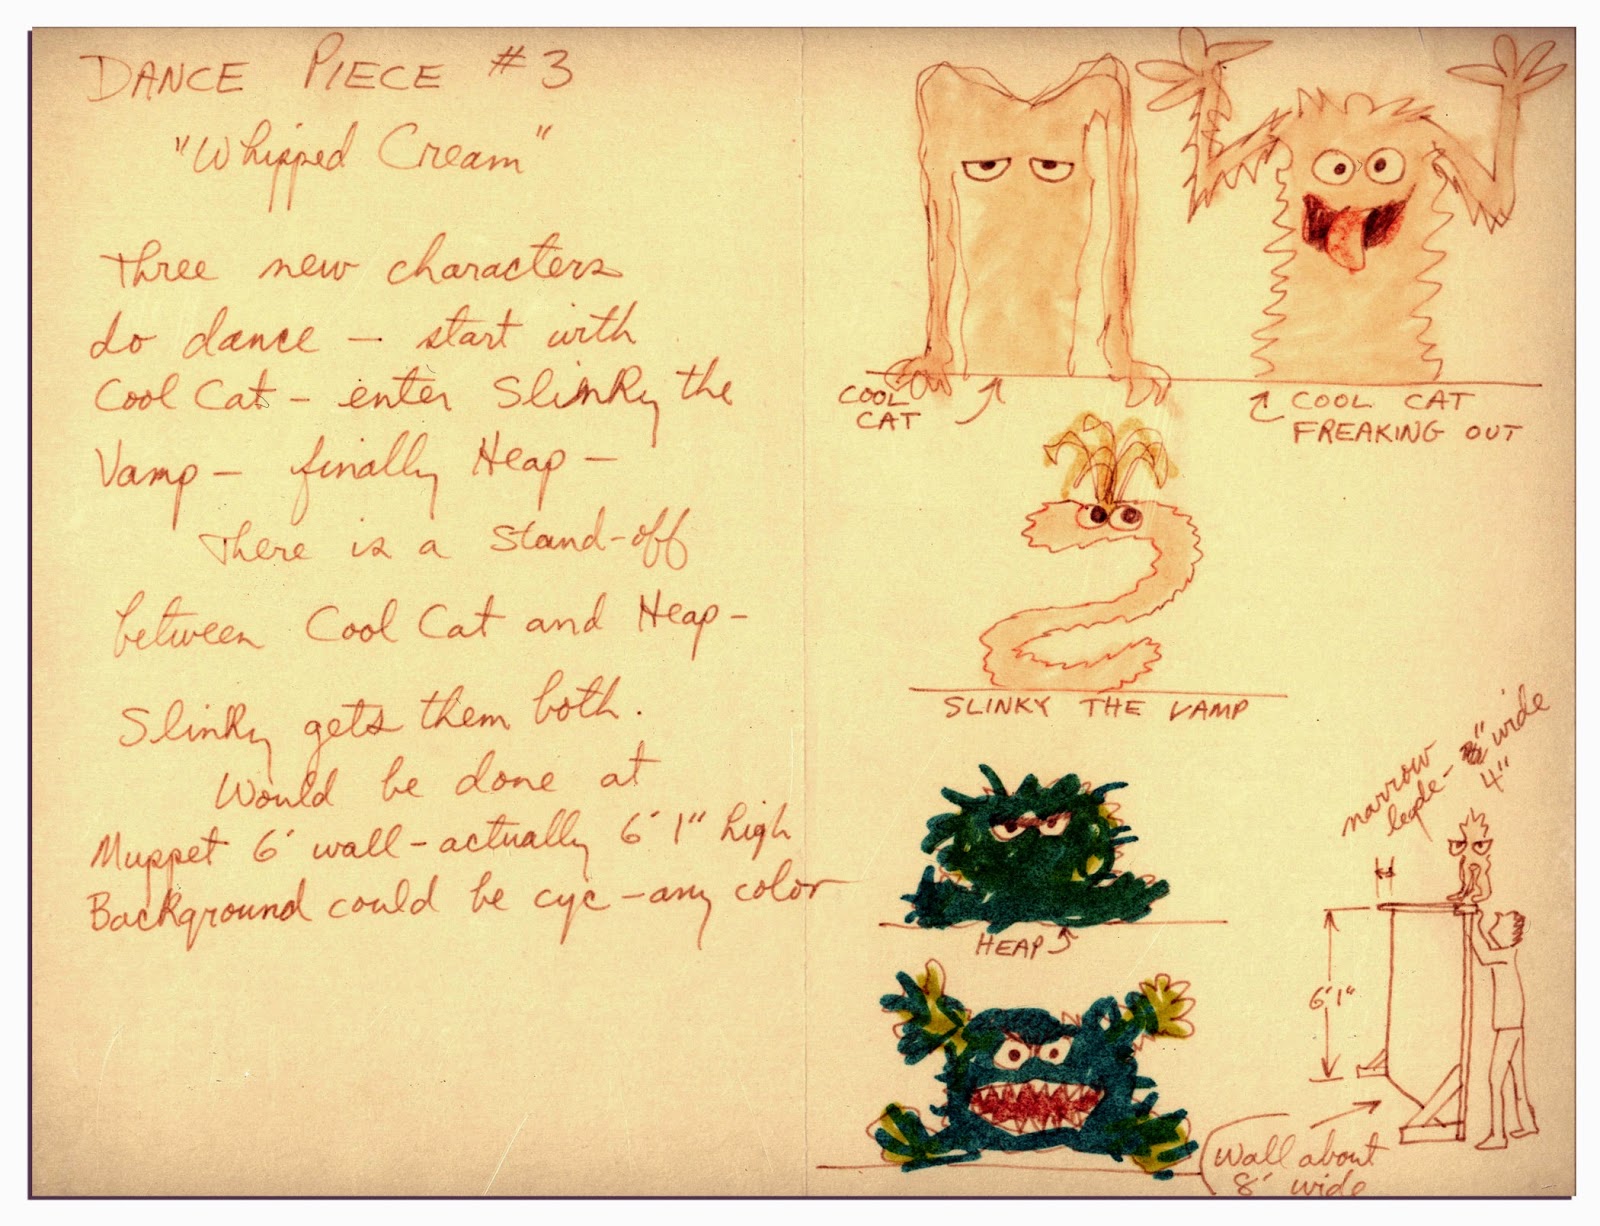 DANCE PIECE #3
"Whipped Cream"
Three new characters
do dance - start with
Cool Cat - enter Slinky the
Vamp - finally Heap -
There is a stand-off
between Cool Cat and Heap -
Slinky gets them both.
Would be done at
Muppet 6' wall - actually 6' 1" high
Background could be cyc - any color
COOL
CAT
COOL CAT
FREAKING OUT
SLINKY THE VAMP
HEAP
narrow
ledge - wide
4"
6'1"
Wall about
8' wide